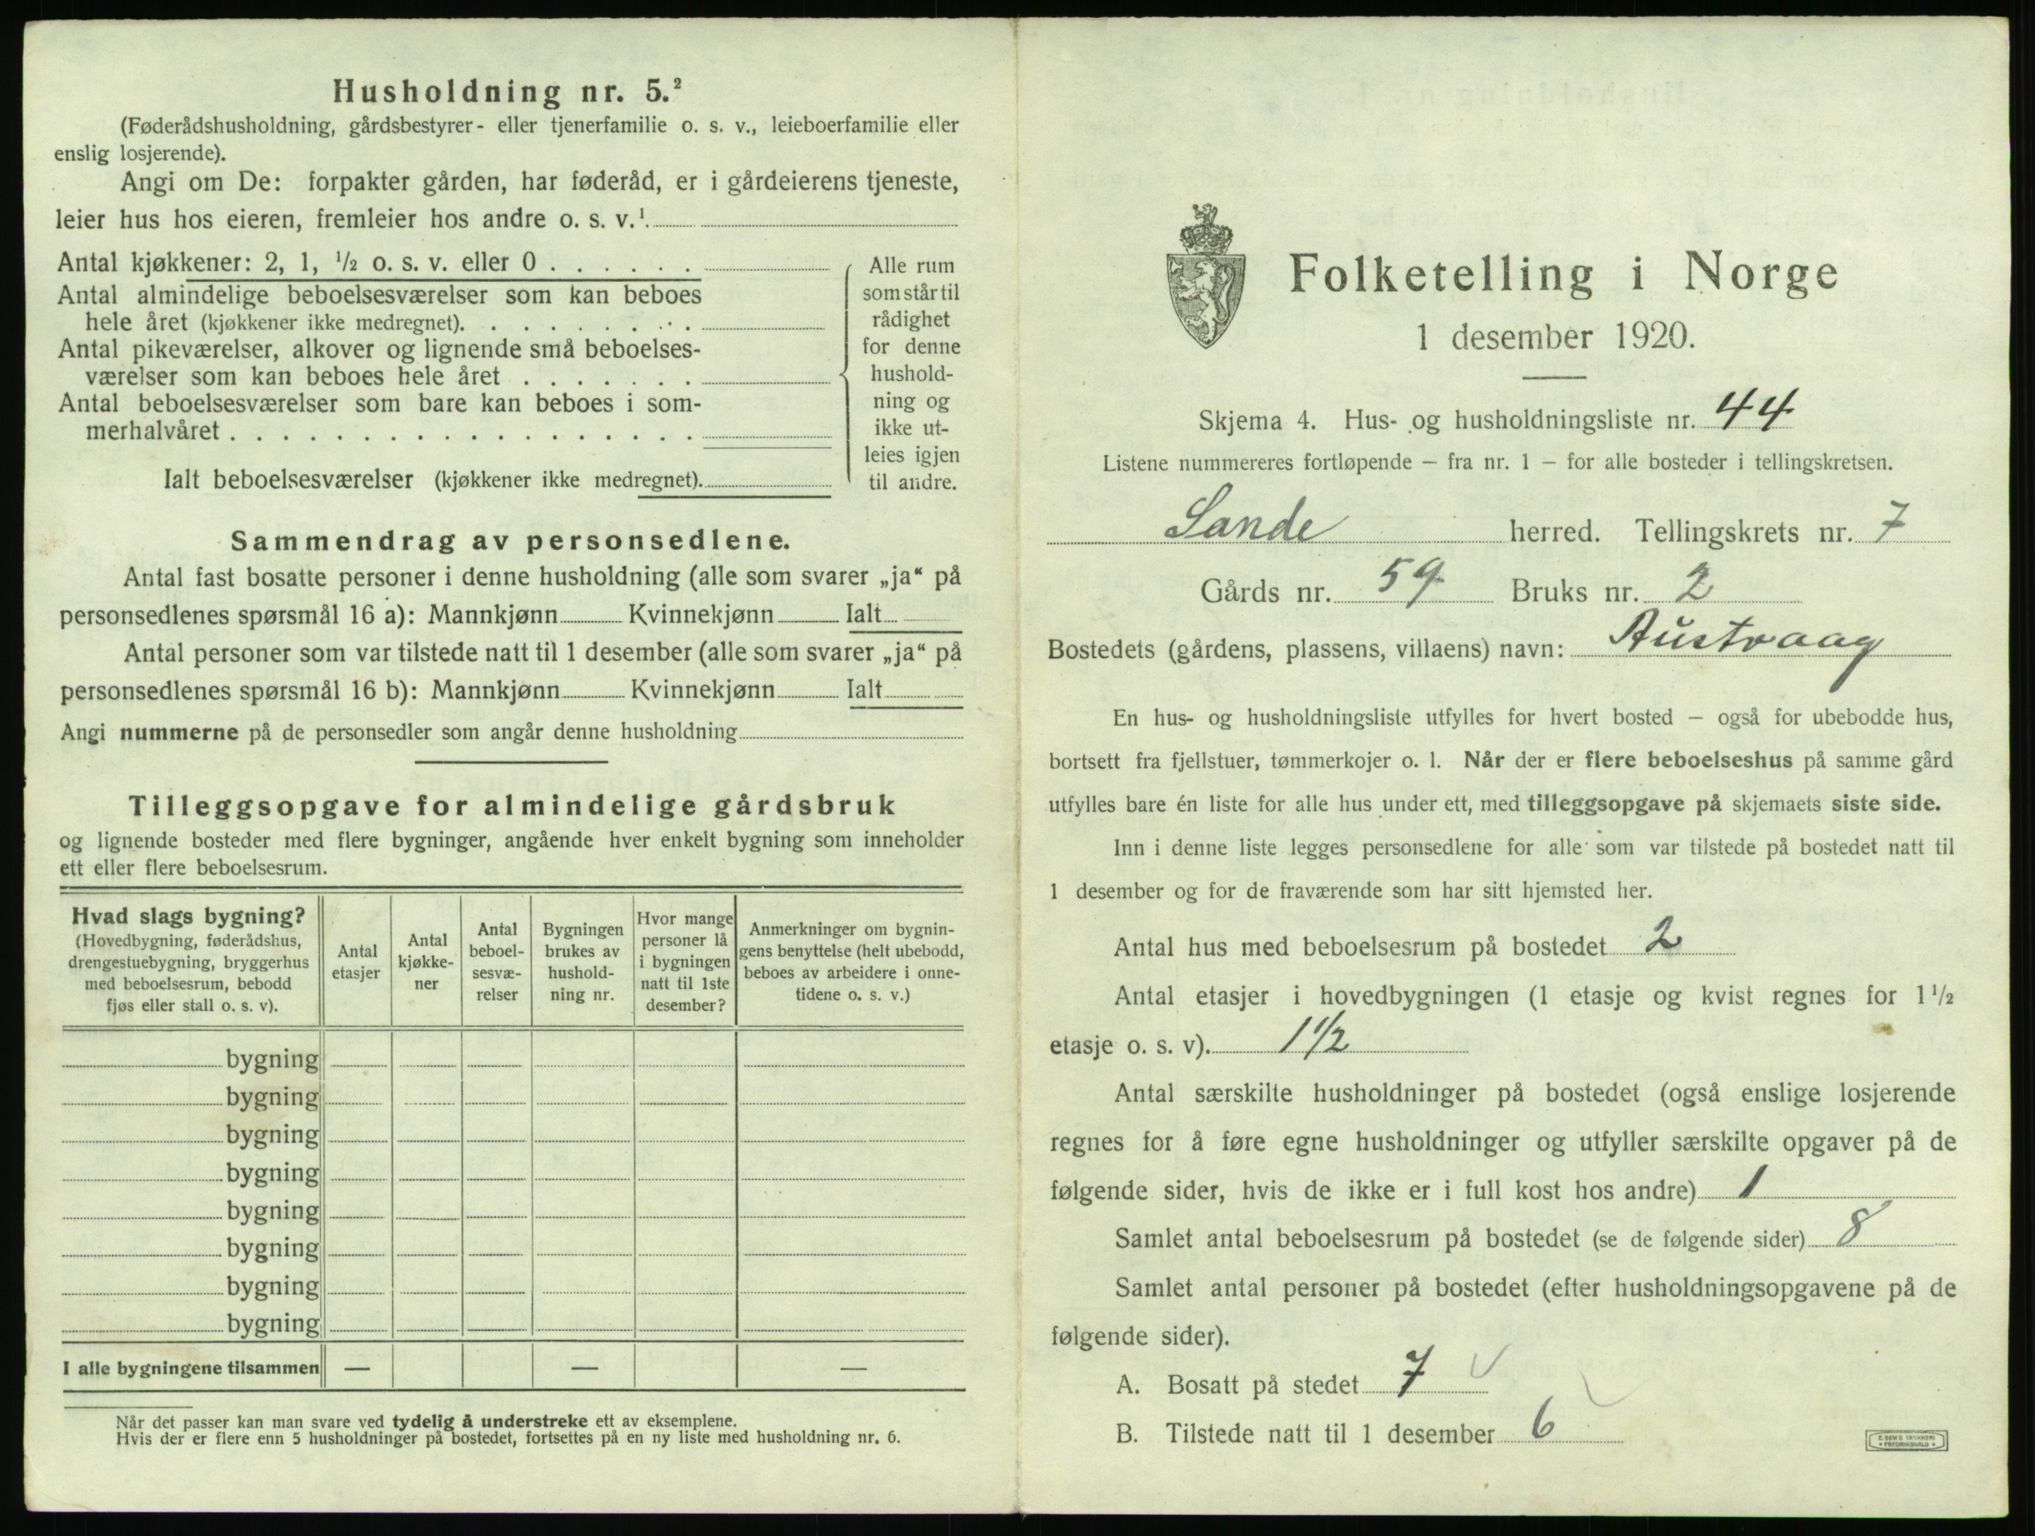 Husholdning nr. 5.²
(Føderådshusholdning, gårdsbestyrer- eller tjenerfamilie o. s. v., leieboerfamilie eller
enslig losjerende).
Angi om De: forpakter gården, har føderåd, er i gårdeierens tjeneste,
leier hus hos eieren, fremleier hos andre o. s. v.¹
Antal kjøkkener: 2, 1, ½ o. s. v. eller 0 . . . . . .
Antal almindelige beboelsesværelser som kan beboes
hele året (kjøkkener ikke medregnet). . . . . . . . .
Antal pikeværelser, alkover og lignende små beboelses-
værelser som kan beboes hele året . . . . . . .
Antal beboelsesværelser som bare kan beboes i som-
merhalvåret . . . . . . . . . . . . . . . . . .
Ialt beboelsesværelser (kjøkkener ikke medregnet).
Alle rum
som står til
rådighet
for denne
hushold-
ning og
ikke ut-
leies igjen
til andre.
Sammendrag av personsedlene.
Antal fast bosatte personer i denne husholdning (alle som svarer „ja“ på
personsedlenes spørsmål 16 a): Mannkjønn Kvinnekjønn Ialt
Antal personer som var tilstede natt til 1 desember (alle som svarer „ja“ på
personsedlenes spørsmål 16 b): Mannkjønn Kvinnekjønn Ialt
Angi nummerne på de personsedler som angår denne husholdning
Tilleggsopgave for almindelige gårdsbruk
og lignende bosteder med flere bygninger, angående hver enkelt bygning som inneholder
ett eller flere beboelsesrum.
Hvad slags bygning?
(Hovedbygning, føderådshus,
drengestuebygning, bryggerhus
med beboelsesrum, bebodd
fjøs eller stall o. s. v).
Antal
etasjer
Antal
kjøkke-
ner
Antal
beboel-
sesvæ-
relser
Bygningen
brukes av
hushold-
ning nr.
Hvor mange
personer lå
i bygningen
natt til 1ste
desember?
Anmerkninger om bygnin-
gens benyttelse (helt ubebodd,
beboes av arbeidere i onne-
tidene o. s. v.)
bygning
bygning
bygning
bygning
bygning
bygning
bygning
bygning
I alle bygningene tilsammen — — —
Når det passer kan man svare ved tydelig å understreke ett av eksemplene.
Hvis der er flere enn 5 husholdninger på bostedet, fortsettes på en ny liste med husholdning nr. 6.
Folketelling i Norge
1 desember 1920.
Skjema 4. Hus- og husholdningsliste nr. 44
Listene nummereres fortløpende – fra nr. 1 – for alle bosteder i tellingskretsen.
Sande herred. Tellingskrets nr. 7
Gårds nr. 59 Bruks nr. 2
Bostedets (gårdens, plassens, villaens) navn: Austvaag
En hus- og husholdningsliste utfylles for hvert bosted – også for ubebodde hus,
bortsett fra fjellstuer, tømmerkojer o. l. Når der er flere beboelseshus på samme gård
utfylles bare én liste for alle hus under ett, med tilleggsopgave på skjemaets siste side.
Inn i denne liste legges personsedlene for alle som var tilstede på bostedet natt til
1 desember og for de fraværende som har sitt hjemsted her.
Antal hus med beboelsesrum på bostedet 2
Antal etasjer i hovedbygningen (1 etasje og kvist regnes for 1½
etasje o. s. v). 1½
Antal særskilte husholdninger på bostedet (også enslige losjerende
regnes for å føre egne husholdninger og utfyller særskilte opgaver på de
følgende sider, hvis de ikke er i full kost hos andre) 1
Samlet antal beboelsesrum på bostedet (se de følgende sider) 8
Samlet antal personer på bostedet (efter husholdningsopgavene på de
følgende sider).
A. Bosatt på stedet 7
B. Tilstede natt til 1 desember 6